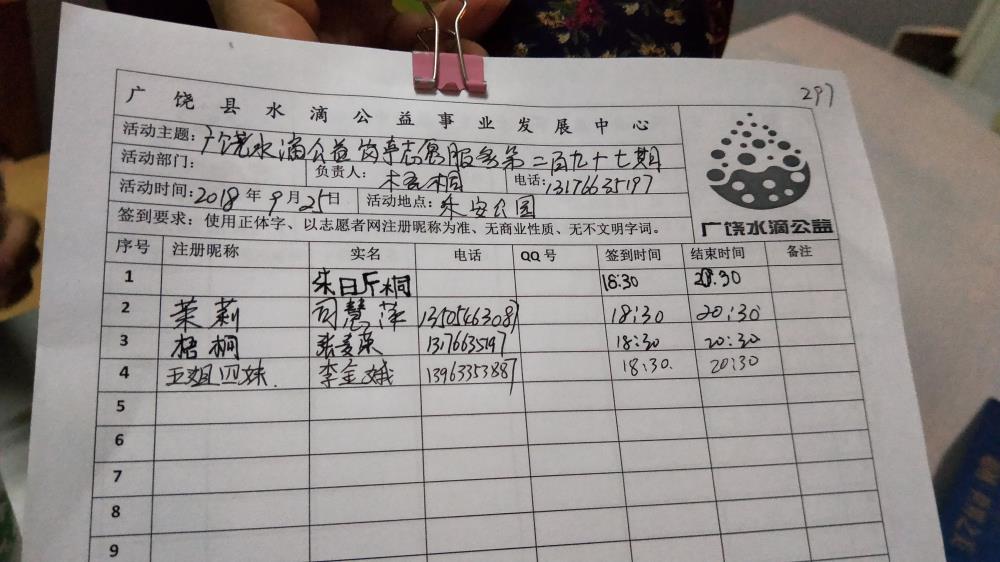 297
广饶县水滴公益事业发展中心
活动主题：广饶水滴公益岗亭志愿服务第二百九十七期
活动部门： 负责人：梧桐 电话：13176635197
活动时间：2018年9月25日 活动地点：乐安公园
签到要求：使用正体字、以志愿者网注册昵称为准、无商业性质、无不文明字词。
广饶水滴公益
序号 注册昵称 实名 电话 QQ号 签到时间 结束时间 备注
1 18:30 20:30
2 茉莉 司慧萍 13505463087 18:30 20:30
3 梧桐 13176635197 18:30 20:30
4 五姐四妹 李金娥 13963353887 18:30. 20:30
5
6
7
8
9